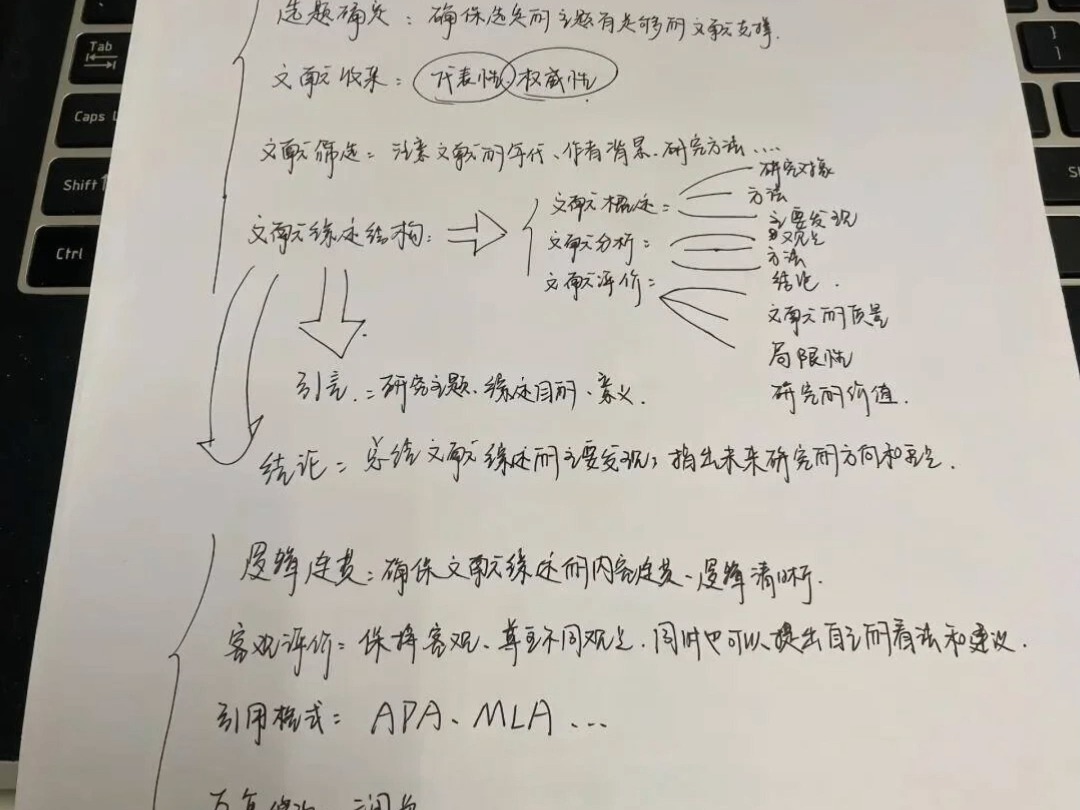 选题确定：确保选定的主题有足够的文献支撑.
文献收集：代表性 权威性
文献筛选：注意文献的年代、作者背景、研究方法....
研究对象
文献概述：方法
主要发现
文献综述结构：
文献分析：观点
方法
结论.
文献评价：
文献的质量
局限性
研究的价值.
引言：研究主题、综述目的、意义.
结论：总结文献综述的主要发现；指出未来研究的方向和重点.
逻辑连贯：确保文献综述的内容连贯、逻辑清晰.
客观评价：保持客观、尊重不同观点.同时也可以提出自己的看法和建议.
引用格式：APA、MLA...
Tab
Caps
Shift
Ctrl